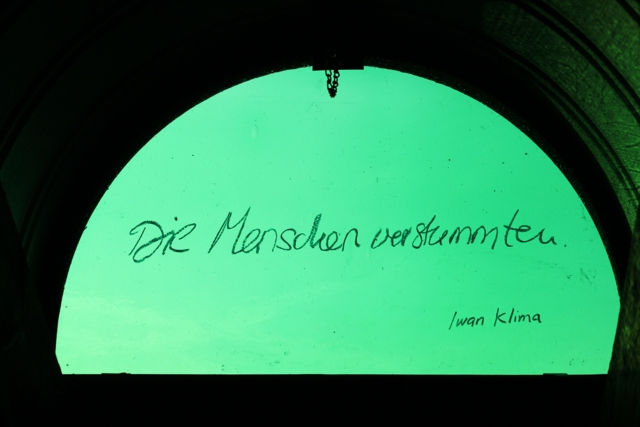 Die Menschen verstummten.
Iwan Klima